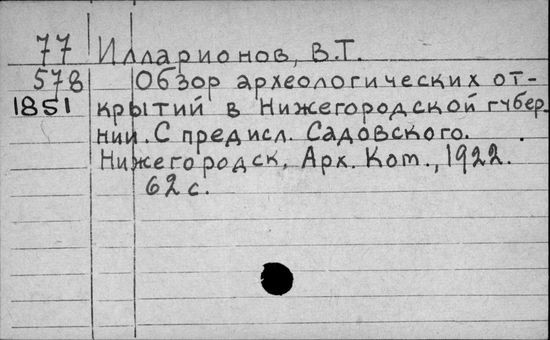 77 Илларионов, В.Т.
578 Обзор археологических от-
1851 крытий в Нижегородской губер-
нии. С предисл. Садовского.
Нижегородск. Арх. Ком., 1922.
62 с.